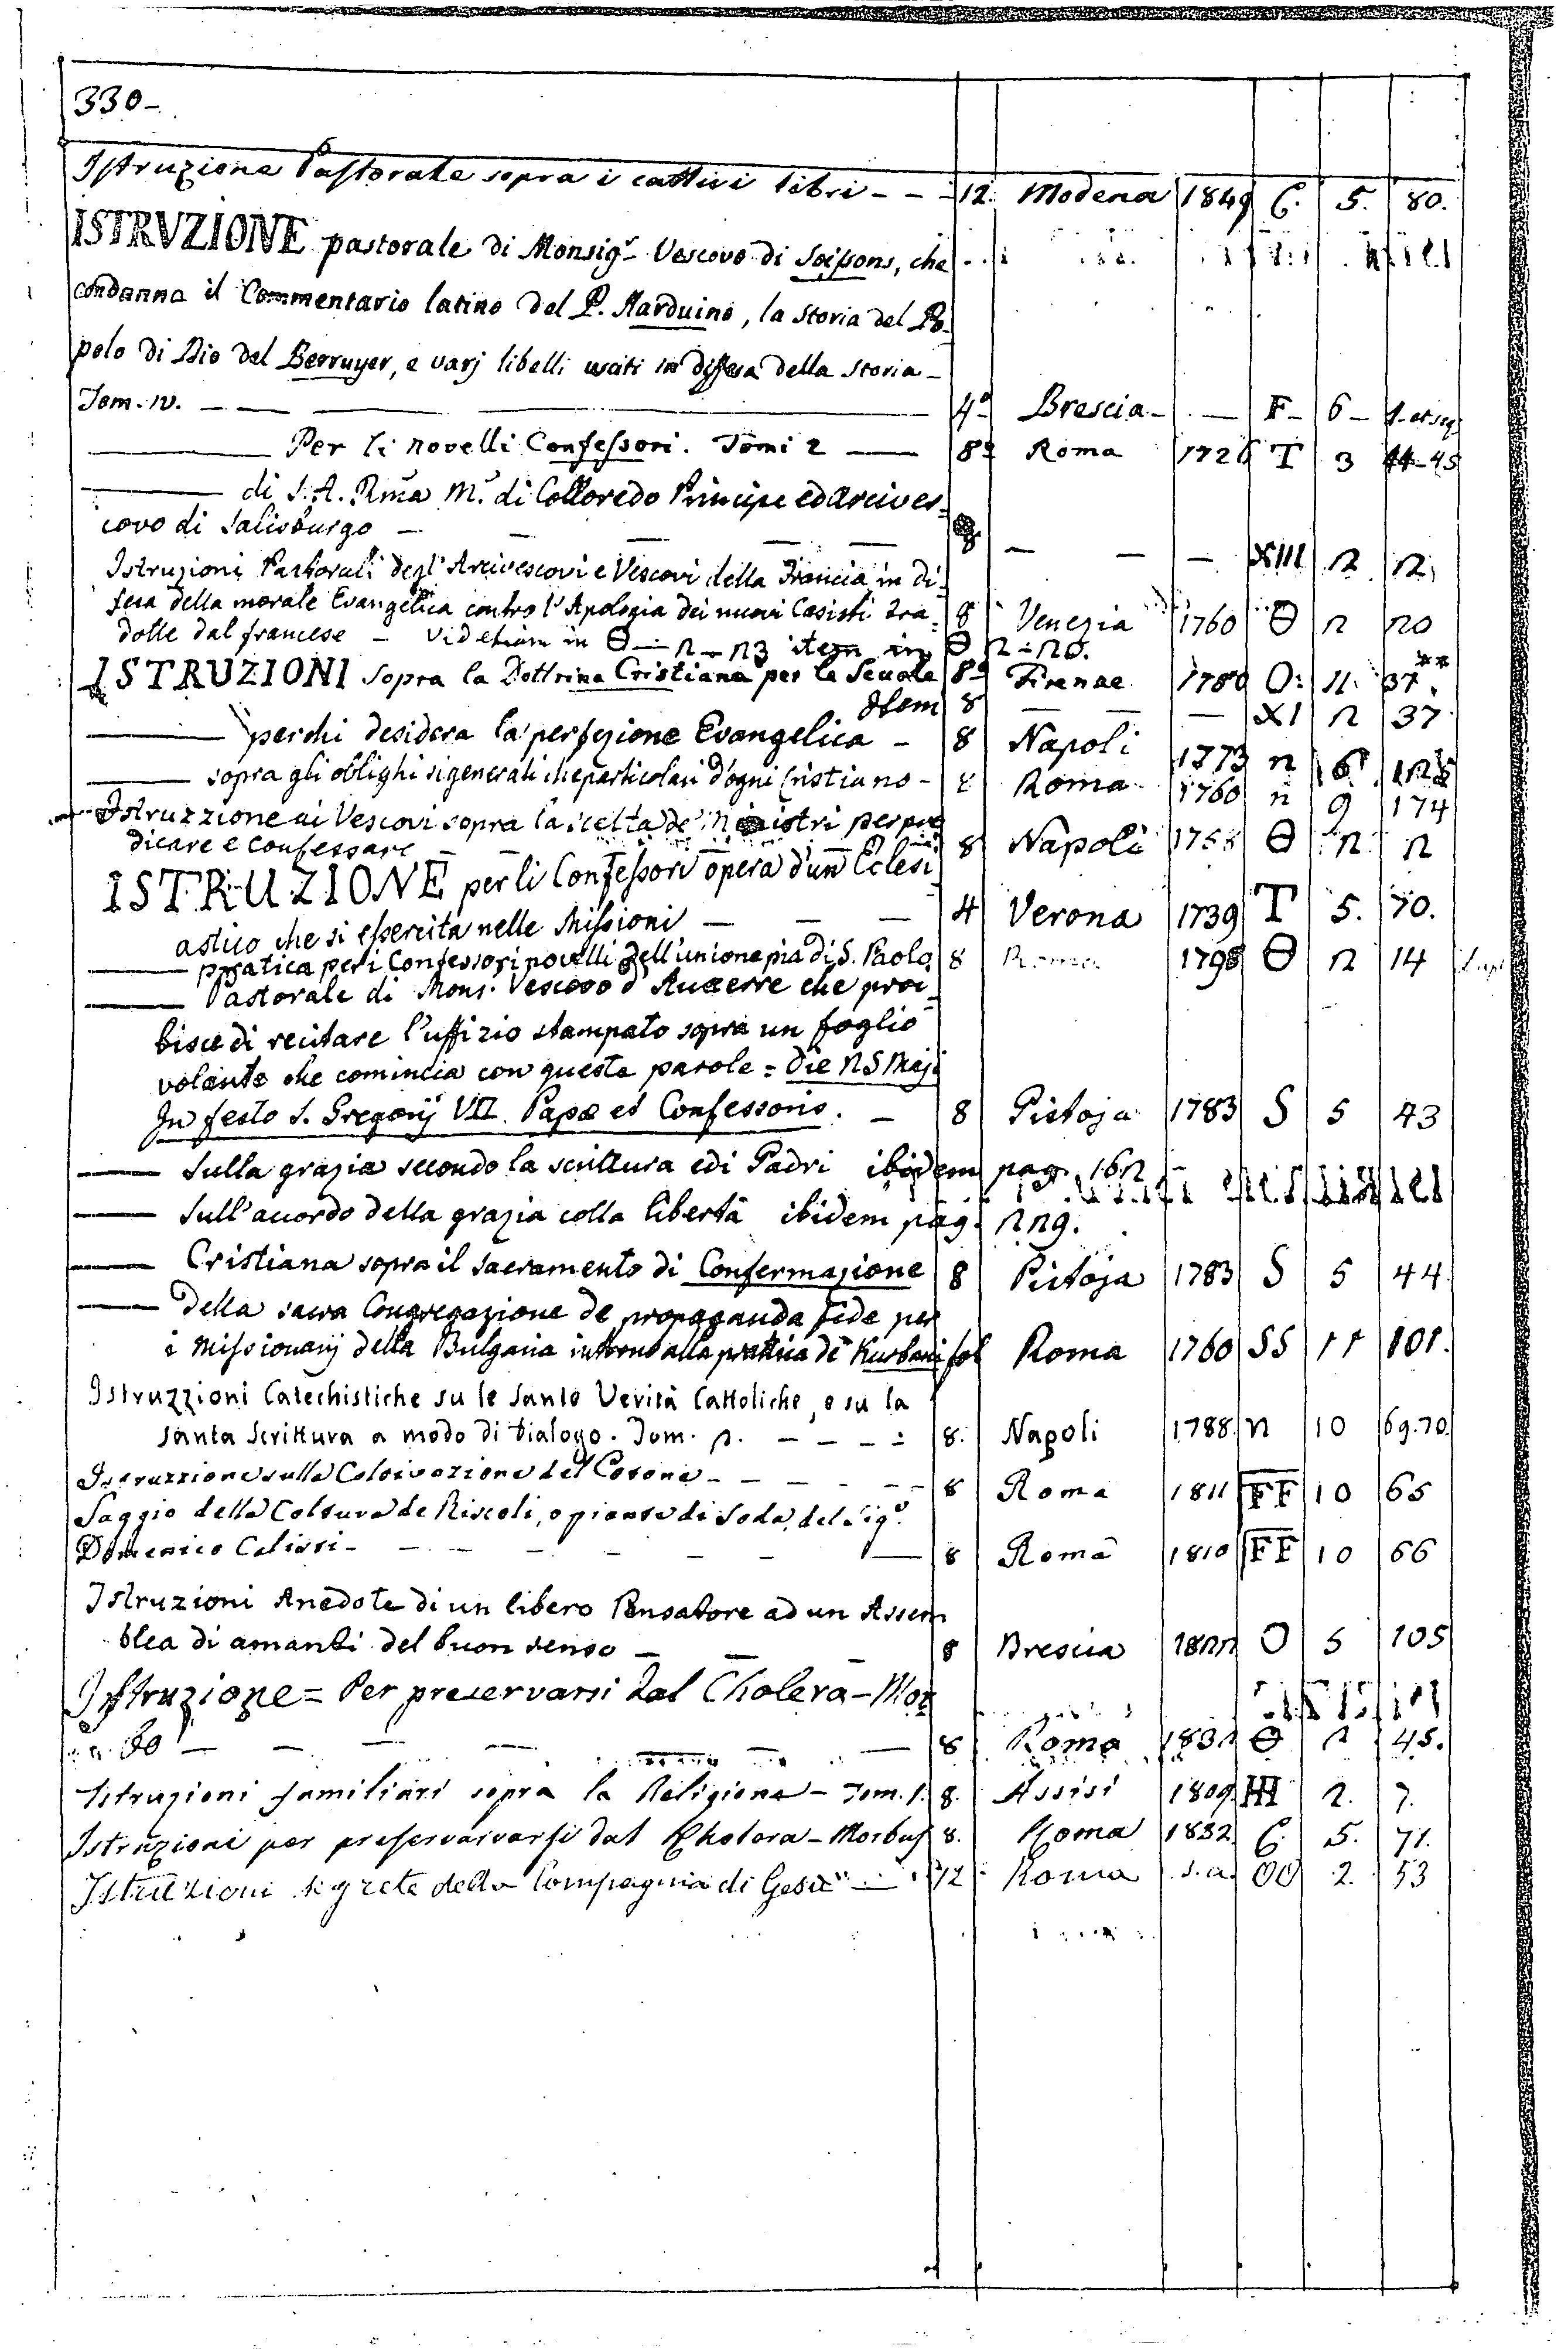 330-
Istruzione Pastorale sopra i cattivi libri - - - 12. Modena 1849 C. 5. 80.
ISTRVZIONE pastorale di Monsigr. Vescovo di Soissons, che
condanna il Commentario latino del P. Harduino, la storia del Po-
polo di Dio del Berruyer, e varj libelli usciti in difesa della storia -
Tom. IV. — — — 4o Brescia - — F - 6 - 1. et seq
— Per li novelli Confessori. Tomi 2 — 8o Roma 1726 T 3 44-45
— di S. A. Rma M. di Colloredo Principe ed Arcives=
covo di Salisburgo — — — — — 8 — — — XIII 2 12.
Istruzioni Pastorali degl' Arcivescovi e Vescovi della Francia in di=
fesa della morale Evangelica contro l'Apologia dei nuovi Casisti tra= 8 Venezia 1760 Θ 2 20
dotte dal francese — Vid etiam in Θ — 2 — 23 item in Θ 2 = 20.
ISTRUZIONI sopra la Dottrina Cristiana per le Scuole 8o Firenze 1780 O: 11. 37**
Item 8 — — — XI 2 37
— perchi desidera la perfezione Evangelica — 8 Napoli 1773 n 6
— sopra gli oblighi sì generali che particolari d'ogni Cristiano - 8 Roma 1760 n 9 174
Istruzzione ai Vescovi sopra la scelta de' Ministri per pre
dicare e Confessare — — — — 8 Napoli Θ 2 2
ISTRUZIONE per li Confessori opera d'un Eclesi
astico che si essercita nelle Missioni — — — 4 Verona 1739 T 5. 70.
— pratica per i Confessori novelli dell'unione pia di S. Paolo 8 Roma 1798 Θ 2 14
— Pastorale di Mons. Vescovo d'Auxerre che proi=
bisce di recitare l'uffizio stampato sopra un foglio
volante che comincia con queste parole = Die 25 Maji
In festo S. Gregorij VII. Papæ et Confessoris. — 8 Pistoja 1783 S 5 43
— Sulla grazia secondo la scrittura edi Padri ibidem pag. 162
— Sull'accordo della grazia colla libertà ibidem pag. 229.
— Cristiana sopra il sacramento di Confermazione 8 Pistoja 1783 S 5 44
— Della sacra Congregazione de propaganda fide per
i Missionarj della Bulgaria intorno alla pratica de' Kurbani fol Roma 1760 SS 11 101.
Istruzzioni Catechistiche su le Sante Verità Cattoliche, e su la
Santa Scrittura a modo di Dialogo. Tom. 2. — — — - 8. Napoli 1788. n 10 69.70.
Istruzzione sulla Coltivazione del Cotone - — — — — 8 Roma 1811 FF 10 65
Saggio della Coltura de Riscoli, o piante di Soda, del Sigr.
Domenico — — — — — — — 8 Roma 1810 FF 10 66
Istruzioni Anedote di un libero Pensatore ad un Assem
blea di amanti del buon senso — — — 8 Brescia 1822 O 5 105
Istruzione = Per preservarsi dal Cholera-Mor
— — — — — 8 Roma Θ 2 45.
Istruzioni familiari sopra la Religione - Tom. 1. 8. Assisi 1809 HI 2. 7.
Istruzioni per preservarvarsi dal Cholera-Morbus 8. Roma 1832 C. 5. 71.
Istruzioni segrete della Compagnia di Gesù — 12 Roma s.a. OO 2. 53